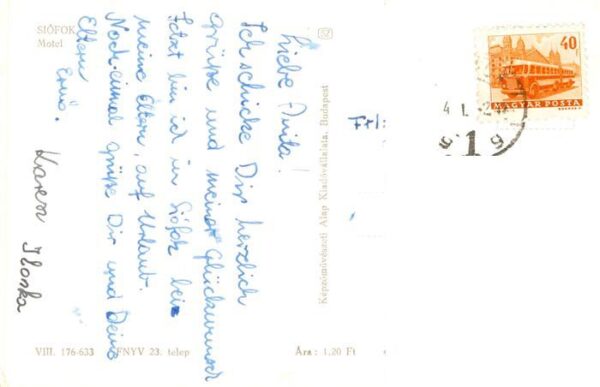 SIÓFOK
Motel
Liebe Anita!
Ich schicke Dir herzlich
Grüße und meine Glückwunsch
Jetzt bin ich in Siófok bei
meine Eltern, auf Urlaub.
Noch einmal grüße Dir und Deine
Eltern
Karen Ilonka
VIII. 176-633
FNYV 23. telep
Ára: 1,20 Ft
Képzőművészeti Alap Kiadóvállalata, Budapest
40 f
MAGYAR POSTA